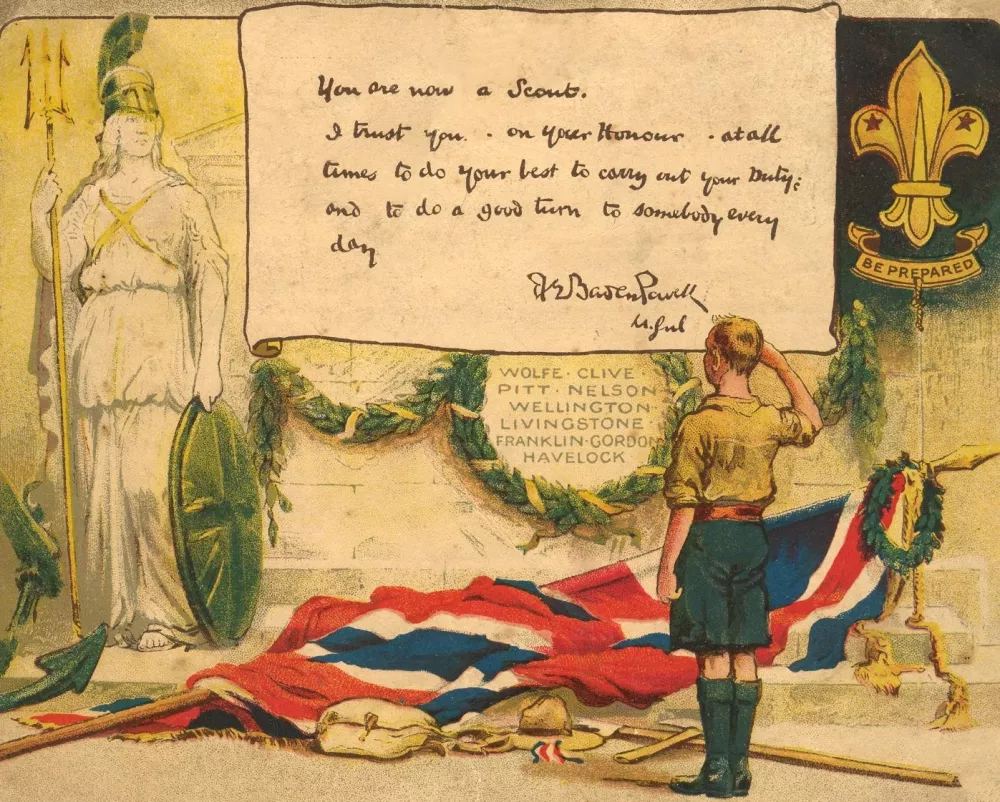 You are now a Scout.
I trust you. - on your Honour - at all
times to do your best to carry out your Duty;
and to do a good turn to somebody every
day
BE PREPARED
WOLFE · CLIVE
PITT · NELSON
WELLINGTON
LIVINGSTONE ·
FRANKLIN · GORDON
HAVELOCK ·
Baden Powell